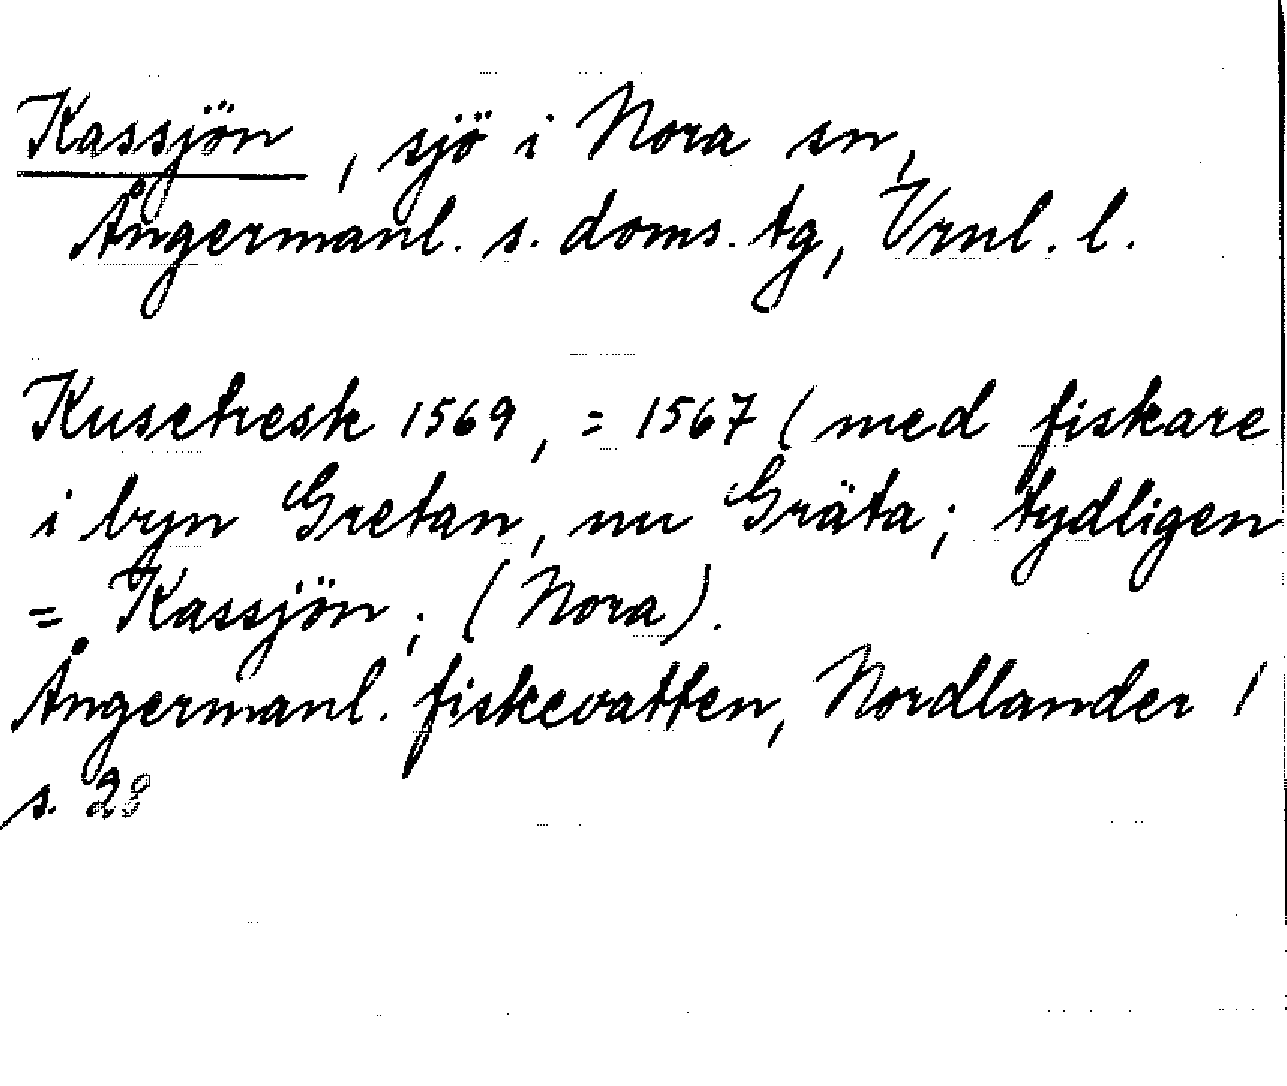 Kassjön, sjö i Nora sn,
Ångermanl. s. doms. tg, Vrnl. l.
Kusetresk 1569, = 1567 (med fiskare
i byn Gretan, nu Gräta; tydligen
= Kassjön; (Nora).
Ångermanl. fiskevatten, Nordlander 1
s. 28